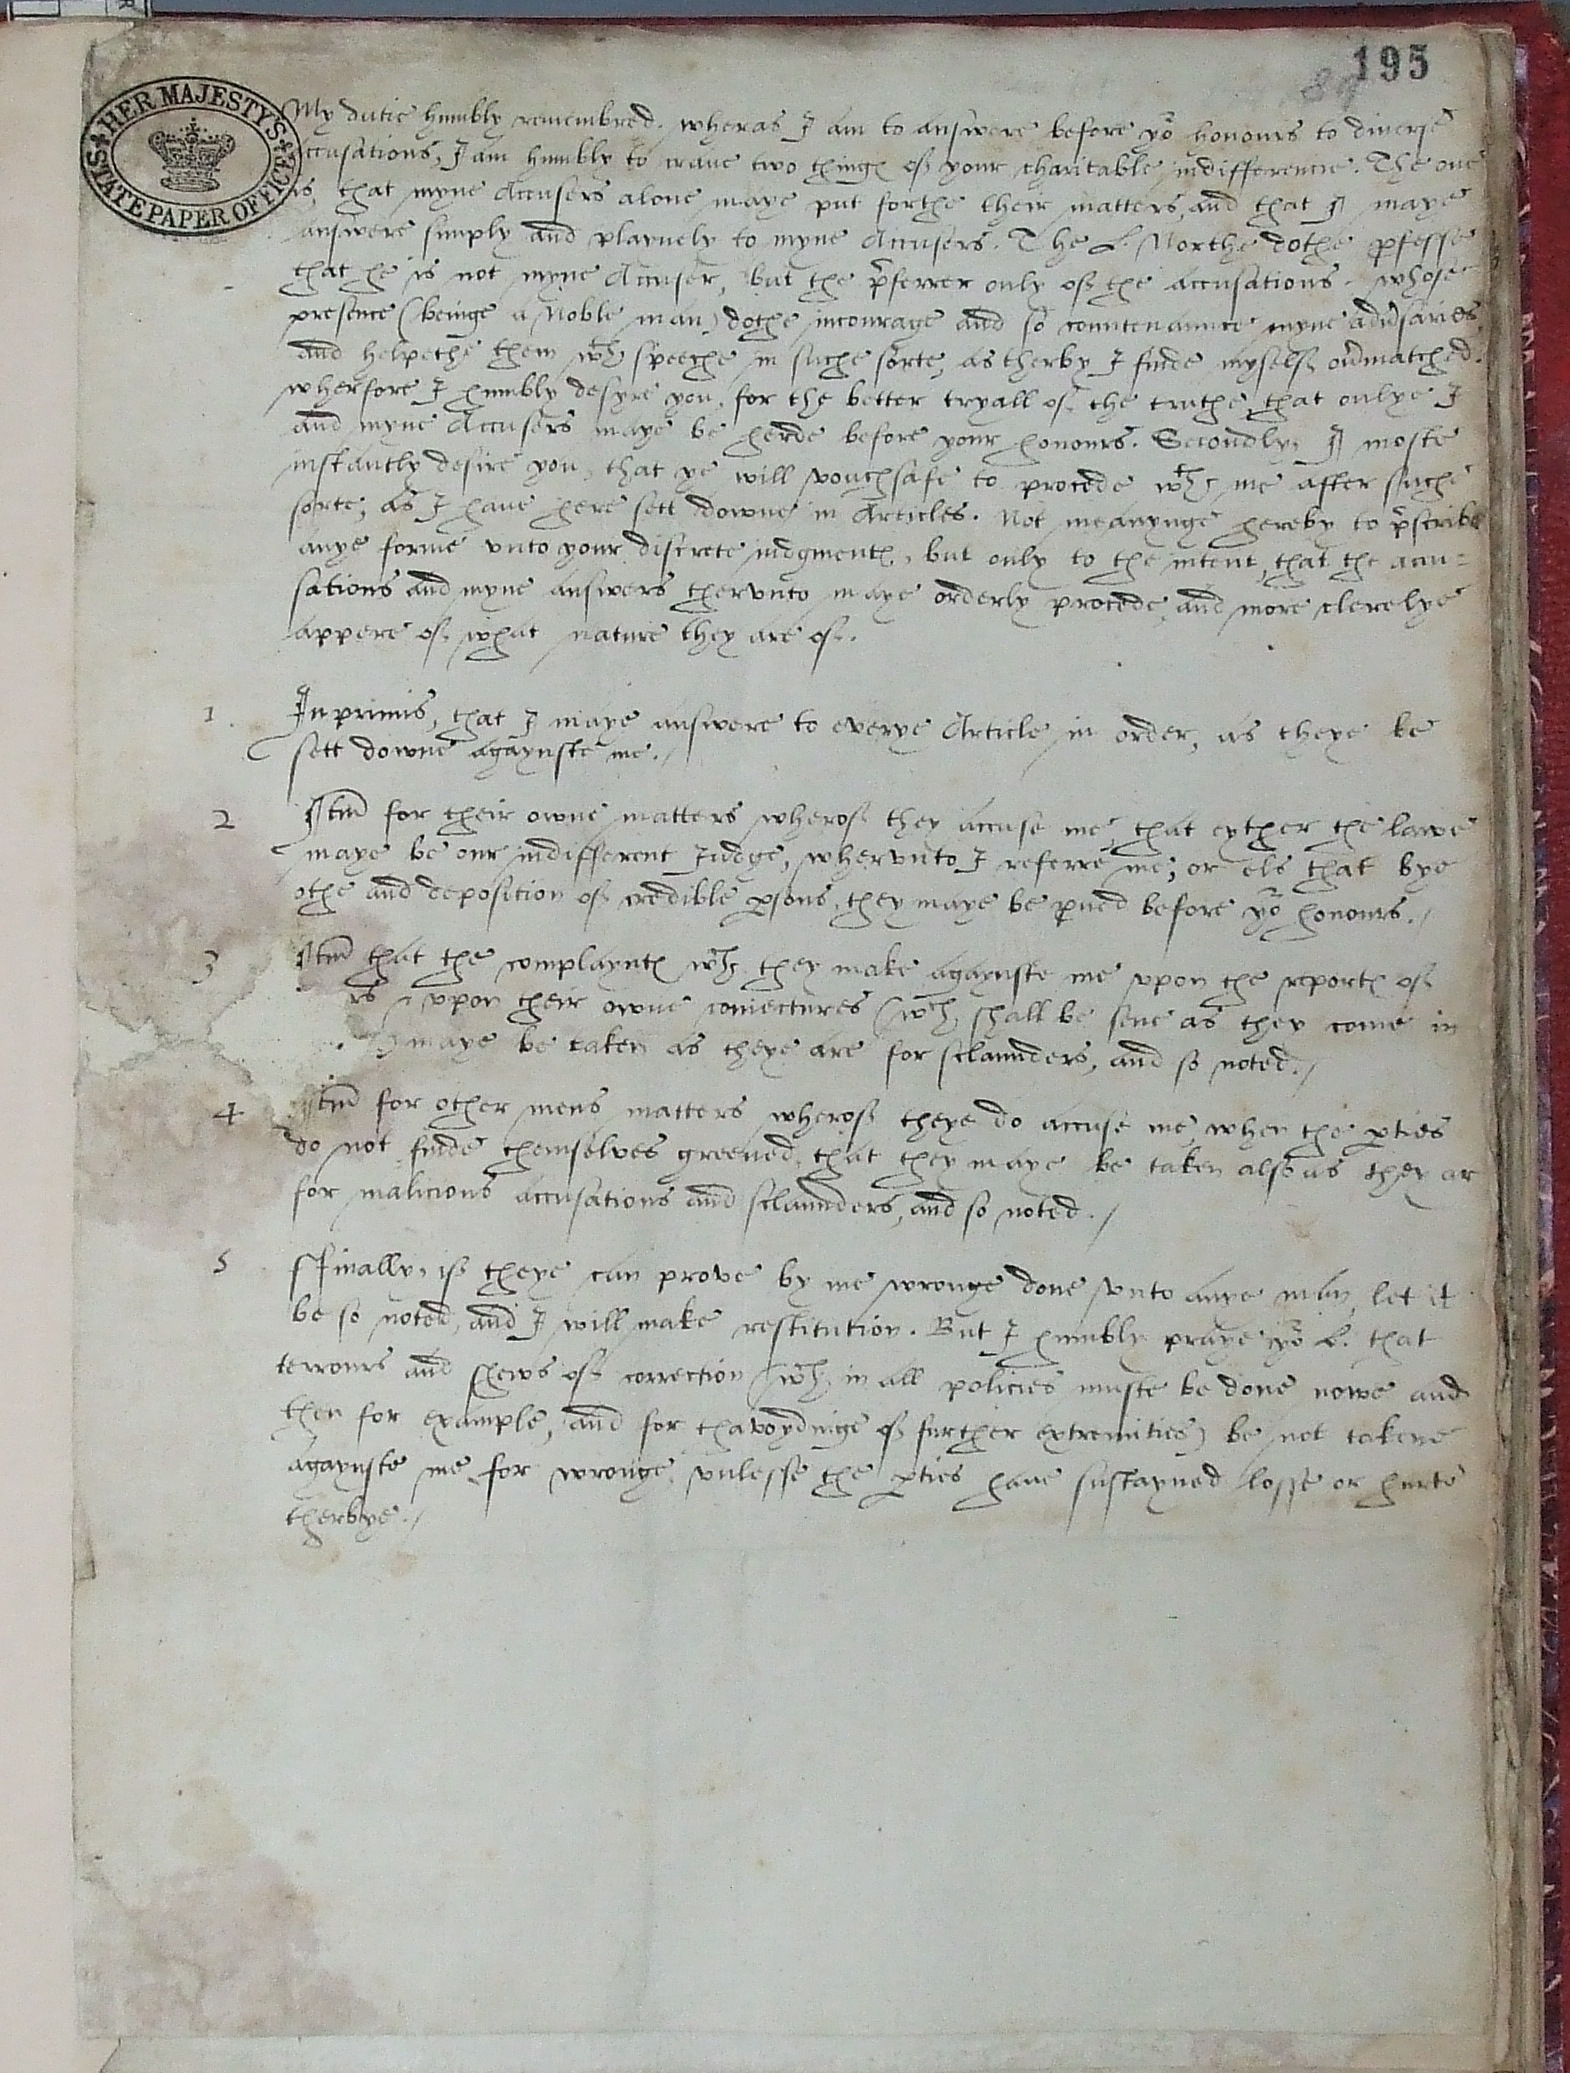 195
89
HER MAJESTY'S
STATE PAPER OFFICE
My dutie humbly remembred. wheras I am to answere before yor honours to diverse
Accusations, I am humbly to crave two thinges of your charitable indifferencie. The one
is, that myne Accusers alone maye put forthe their matters, and that I maye
answere simply and playnely to myne Accusers. The L. Northe dothe pfesse
that he is not myne Accuser, but the pferrer only of the accusations. whose
presence (beinge a Noble man) dothe incourage and so countenaunce myne adversaries,
and helpethe them wth speeche in suche sorte, as therby I finde myself overmatched.
wherfore I humbly desyre you, for the better tryall of the truthe, that onlye I
and myne Accusers maye be herde before your honours. Secondly, I moste
instantly desire you, that ye will vouchsafe to procede wth me after suche
sorte, as I have here sett downe in Articles. Not meanynge hereby to pscribe
anye forme vnto your discrete iudgmentes, but only to the intent, that the accu=
sations and myne answers thervnto maye orderly procede, and more clerelye
appere of what nature they are of.
1. Inprimis, that I maye answere to everye Article in order, as theye be
sett downe agaynste me./
2 Itm for their owne matters wherof they accuse me, that eyther the lawe
maye be our indifferent Iudge, whervnto I referre me; or els that bye
othe and deposition of credible psons, they maye be pued before yor honours./
3 Itm that the complayntes wch they make agaynste me vpon the reportes of
rs & vpon their owne coniectures (wch shall be sene as they come in
maye be taken as theye are for sclaunders, and so noted./
4 Itm for other mens matters wherof theye do accuse me, when the pties
do not finde themselves greeued, that they maye be taken also as they ar
for malicious accusations and sclaunders, and so noted./
5 Finally, if theye can prove by me wronge done vnto anye man, let it
be so noted, and I will make restitution. But I humbly praye yor L. that
terrours and shews of correction (wch in all policies muste be done nowe and
then for example, and for thavoydinge of further extremities) be not takene
agaynste me for wronge, vnlesse the pties have sustayned losse or hurte
therbye./